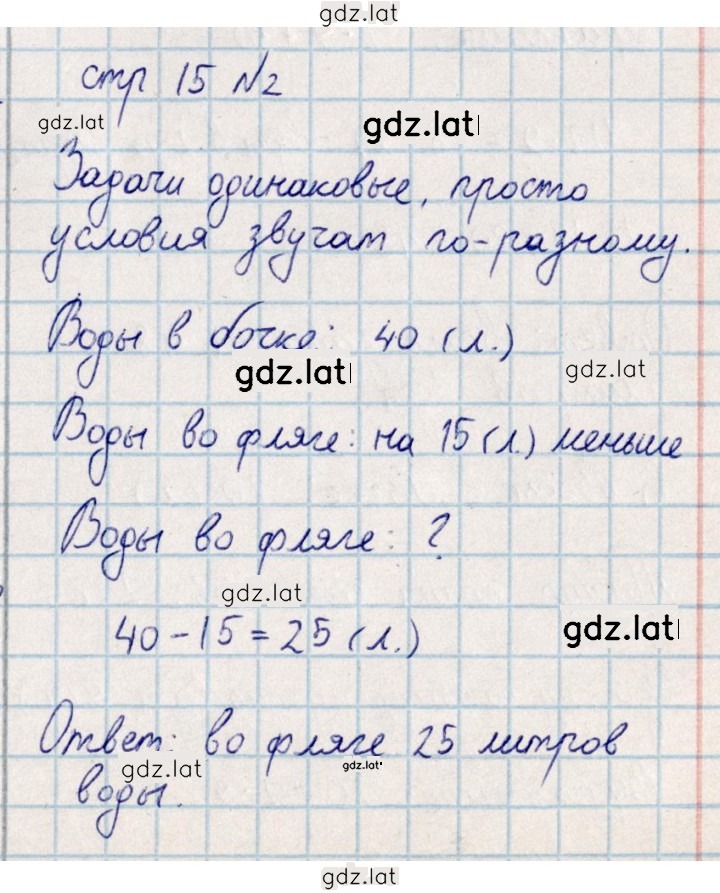 gdz.lat
стр 15 №2
gdz.lat
gdz.lat
Задачи одинаковые, просто
условия звучат по-разному.
Воды в бочке: 40 (л.)
gdz.lat
gdz.lat
Воды во фляге: на 15 (л.) меньше
Воды во фляге: ?
gdz.lat
40 - 15 = 25 (л.)
gdz.lat
Ответ: во фляге 25 литров
gdz.lat
gdz.lat
воды.
gdz.lat